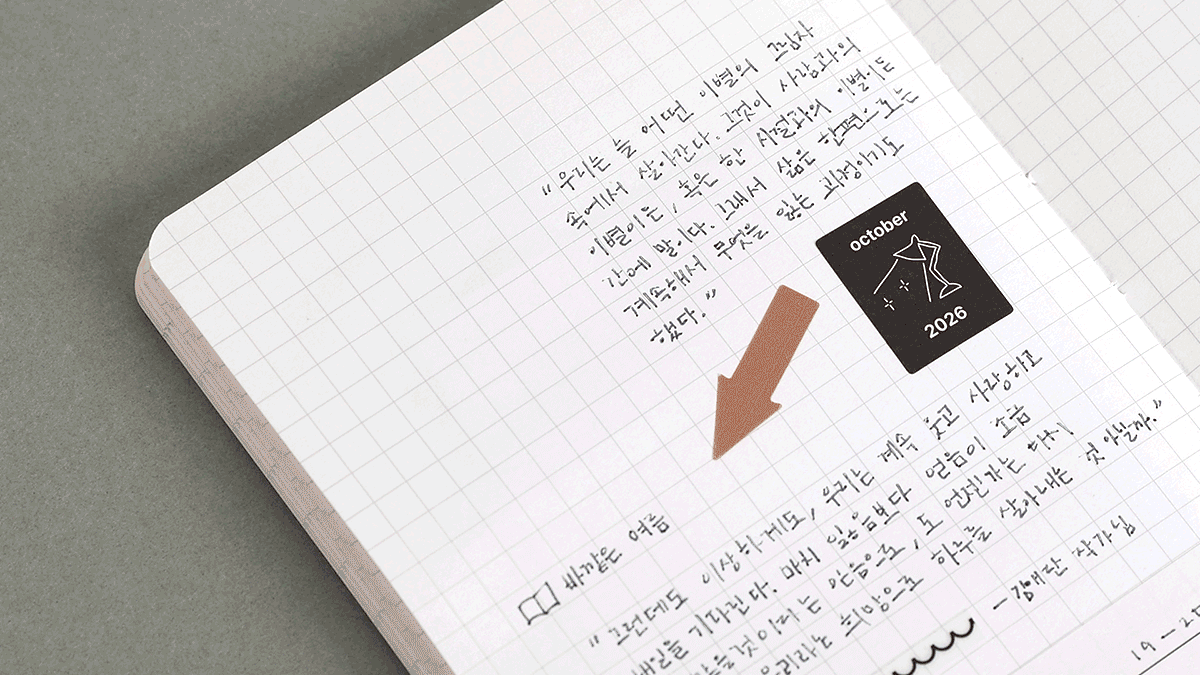 "우리는 늘 어떤 이별의 그림자
속에서 살아간다. 그것이 사람과의
이별이든, 혹은 한 시절과의 이별이든
간에 말이다. 그래서 삶은 한편으로는
계속해서 무엇을 잃는 과정이기도
했다."
october
2026
바깥은 여름
"그런데도 이상하게도, 우리는 계속 웃고 사랑하고
내일을 기다린다. 마치 잃음보다 얻음이 조금
것이라는 믿음으로, 또 언젠가는 다시
우리라는 희망으로 하루를 살아내는 것 아닐까."
- 김애란 작가님